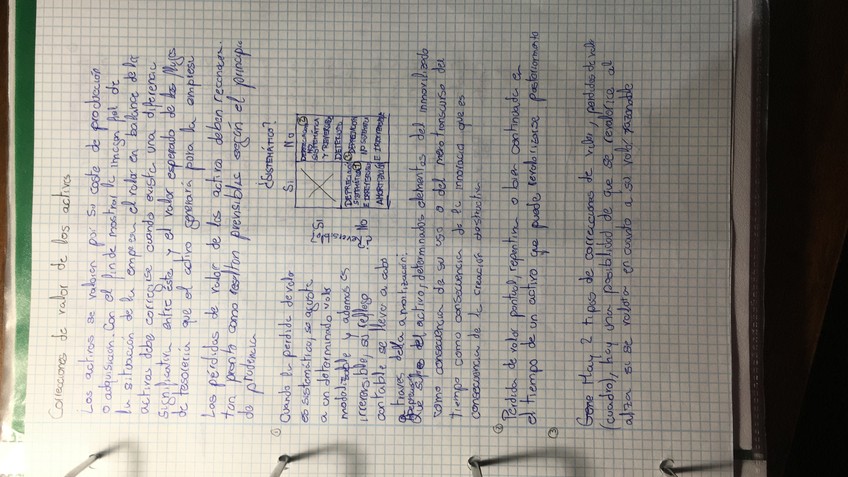 Correcciones de valor de los activos
Los activos se valoran por su coste de producción
o adquisición. Con el fin de mostrar la imagen fiel de
la situación de la empresa el valor en balance de los
activos debe corregirse cuando exista una diferencia
significativa entre éste y el valor esperado de los flujos
de tesorería que el activo generará para la empresa
Las pérdidas de valor de los activos deben reconocerse
tan pronto como resulten previsibles según el principio
de prudencia
¿SISTEMÁTICO?
Si No
¿Reversible?
Si
No
① Cuando la pérdida de valor
es sistemática, se ajusta
a un determinado
y además es
irreversible, su reflejo
contable se lleva a cabo
a través de la amortización:
que sufre del activo, determinados elementos del inmovilizado
como consecuencia de su uso o del mero transcurso del
tiempo como consecuencia de la innovación que es
consecuencia de la creación destructiva
② Pérdida de valor puntual, repentina o bien continuada en
el tiempo de un activo que puede revalorizarse posteriormente
③
Hay 2 tipos de correcciones de valor, pérdidas de valor
(cuadro), hay una posibilidad de que se revalorice al
alza si se valora en cuando a su valor razonable